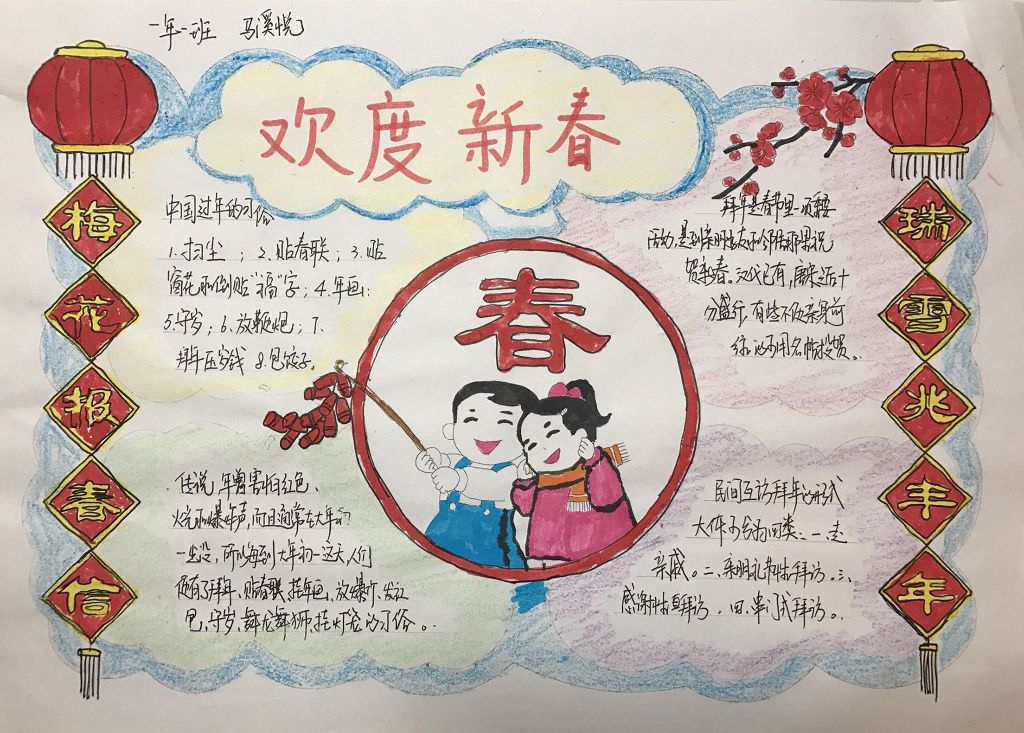 一年一班 马溪悦
欢度新春
梅花报春信
瑞雪兆丰年
中国过年的习俗
1.扫尘；2.贴春联；3.贴
窗花和倒贴“福”字；4.年画；
5.守岁；6.放鞭炮；7.
拜年压岁钱 8.包饺子。
拜年是春节里一项重要
活动，是到亲朋好友和邻居那里祝
贺新春，汉代已有，唐宋之后十
分盛行，有些不便亲身前
往的可用名帖投贺。
春
传说，年兽害怕红色、
火光和爆炸声，而且通常在大年初
一出没，所以每到大年初一这天，人们
便有了拜年、贴春联、挂年画、放爆竹、发红
包、守岁、舞龙舞狮、挂灯笼的习俗。
民间互访拜年的形式
大体可分为四类：一、走
亲戚。二、亲朋礼节性拜访。三、
感谢性拜访，四、串门式拜访。